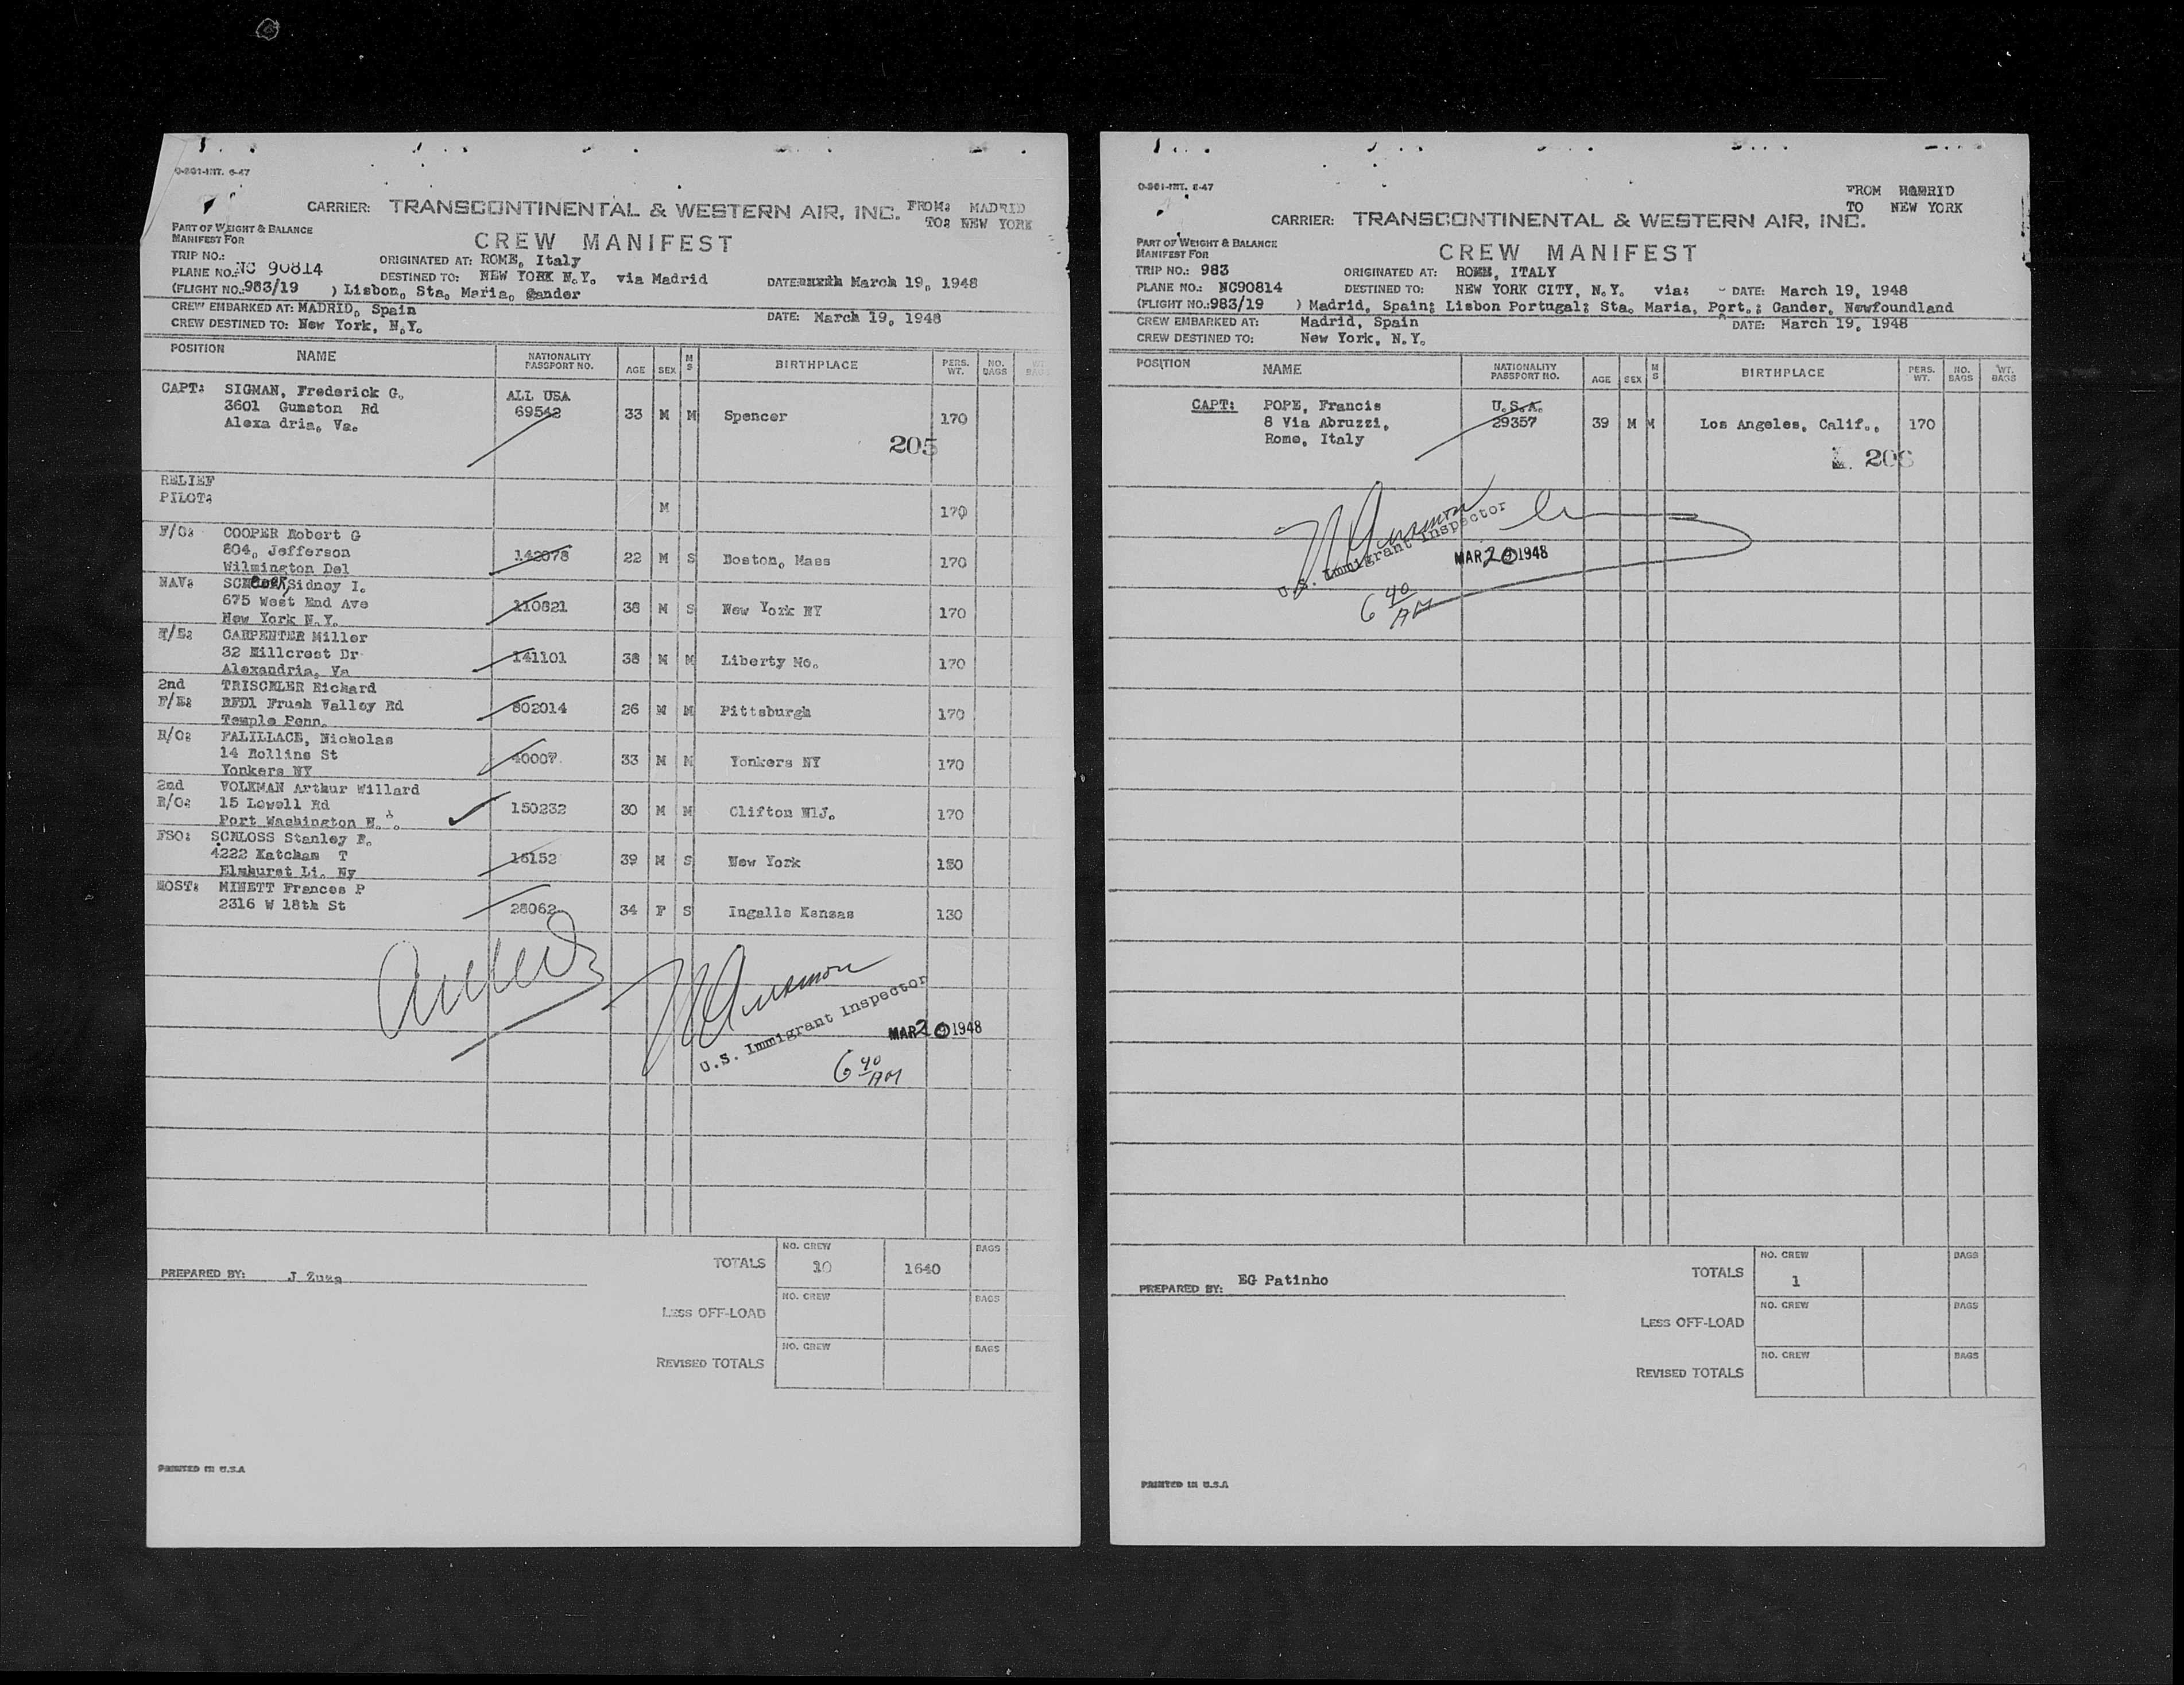 O-801-INT. 6-47
CARRIER: TRANSCONTINENTAL & WESTERN AIR, INC. FROM: MADRID
TO: NEW YORK
PART OF WEIGHT & BALANCE
MANIFEST FOR
CREW MANIFEST
TRIP NO.:
PLANE NO.: NC 90814
ORIGINATED AT: ROME, Italy
DESTINED TO: NEW YORK N.Y. via Madrid DATE: March 19, 1948
(FLIGHT NO.: 983/19 ) Lisbon, Sta. Maria, Gander
CREW EMBARKED AT: MADRID, Spain
DATE: March 19, 1948
CREW DESTINED TO: New York, N.Y.
POSITION NAME NATIONALITY PASSPORT NO. AGE SEX M S BIRTHPLACE PERS. WT. NO. BAGS WT. BAGS
CAPT: SIGMAN, Frederick G. ALL USA
3601 Gunston Rd 69542 33 M M Spencer 170
Alexa dria, Va.
205
RELIEF
PILOT: M 170
F/O: COOPER Robert G
804, Jefferson 142078 22 M S Boston, Mass 170
Wilmington Del
NAV: Sidney I.
675 West End Ave 110821 38 M S New York NY 170
New York N.Y.
F/E: CARPENTER Miller
32 Hillcrest Dr 141101 38 M M Liberty Mo. 170
Alexandria, Va
2nd TRISCHLER Richard
F/E: RFD1 Frush Valley Rd 802014 26 M M Pittsburgh 170
Temple Penn.
R/O: FALILLACE, Nicholas
14 Rollins St 40007 33 M M Yonkers NY 170
Yonkers NY
2nd VOLKMAN Arthur Willard
R/O: 15 Lowell Rd 150232 30 M M Clifton N1J. 170
Port Washington N.
FSO: SCHLOSS Stanley F.
4222 Ketcham T 16152 39 M S New York 130
Elmhurst Li. Ny
HOST: MINETT Frances P
2316 W 18th St 28062 34 F S Ingalls Kansas 130
U.S. Immigrant Inspector
MAR 20 1948
6 40 AM
TOTALS NO. CREW 10 1640 BAGS
PREPARED BY: J Zuza
LESS OFF-LOAD NO. CREW BAGS
REVISED TOTALS NO. CREW BAGS
PRINTED IN U.S.A
O-801-INT. 6-47
FROM MADRID
TO NEW YORK
CARRIER: TRANSCONTINENTAL & WESTERN AIR, INC.
PART OF WEIGHT & BALANCE
MANIFEST FOR
CREW MANIFEST
TRIP NO.: 983 ORIGINATED AT: ROME, ITALY
PLANE NO.: NC90814 DESTINED TO: NEW YORK CITY, N.Y. via: DATE: March 19, 1948
(FLIGHT NO.: 983/19 ) Madrid, Spain; Lisbon Portugal; Sta. Maria, Port.; Gander, Newfoundland
CREW EMBARKED AT: Madrid, Spain DATE: March 19, 1948
CREW DESTINED TO: New York, N.Y.
POSITION NAME NATIONALITY PASSPORT NO. AGE SEX M S BIRTHPLACE PERS. WT. NO. BAGS WT. BAGS
CAPT: POPE, Francis U.S.A.
8 Via Abruzzi, 29357 39 M M Los Angeles, Calif., 170
Rome, Italy
206
U.S. Immigrant Inspector
MAR 20 1948
6 40 AM
TOTALS NO. CREW 1 BAGS
PREPARED BY: EG Patinho
LESS OFF-LOAD NO. CREW BAGS
REVISED TOTALS NO. CREW BAGS
PRINTED IN U.S.A